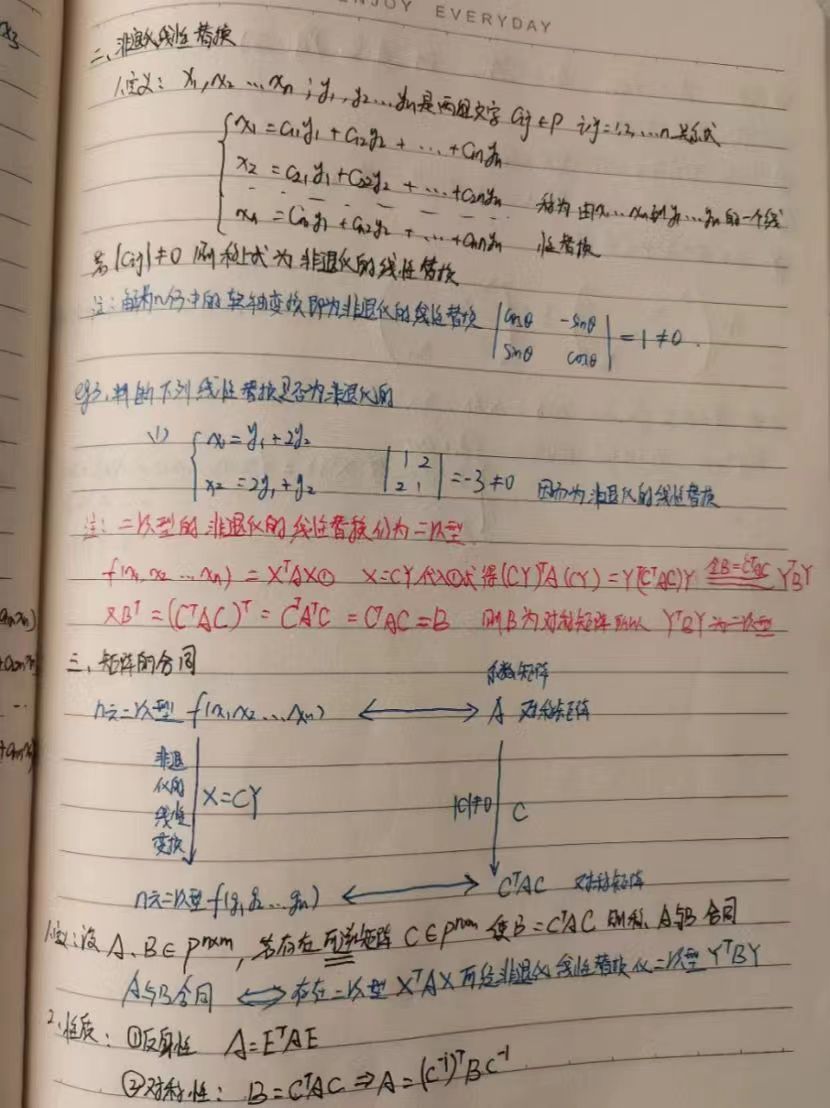 ENJOY EVERYDAY
二、非退化线性替换
1.定义: x₁,x₂ … xₙ ; y₁, y₂ … yₙ是两组文字 Cij ∈ P i,j=1,2, … n 关系式
x₁ = C₁₁y₁ + C₁₂y₂ + … + C₁ₙyₙ
x₂ = C₂₁y₁ + C₂₂y₂ + … + C₂ₙyₙ 称为由x₁ … xₙ到y₁ … yₙ的一个线
xₙ = Cₙ₁y₁ + Cₙ₂y₂ + … + Cₙₙyₙ 性替换
若|Cij|≠0 则称上式为非退化的线性替换
注: 解析几何中的转轴变换即为非退化的线性替换 |cosθ -sinθ
sinθ cosθ| = 1 ≠ 0.
eg3. 判断下列线性替换是否为非退化的
(1) { x₁ = y₁ + 2y₂
x₂ = 2y₁ + y₂ |1 2
2 1| = -3 ≠ 0 因而为非退化的线性替换
注: 二次型的非退化的线性替换仍为二次型
f(x₁, x₂ … xₙ) = XᵀAX① X=CY代入①式得(CY)ᵀA(CY) = Yᵀ(CᵀAC)Y 令B=CᵀAC YᵀBY
又Bᵀ = (CᵀAC)ᵀ = CᵀAᵀC = CᵀAC = B 则B为对称矩阵所以 YᵀBY为二次型
三、矩阵的合同
系数矩阵
n元二次型 f(x₁,x₂ … xₙ) ⟷ A 对称矩阵
非退化的线性变换 X=CY |C|≠0 C
n元二次型 f(y₁ y₂ … yₙ) ⟷ CᵀAC 对称矩阵
1.定义: 设A、B∈Pⁿˣⁿ, 若存在可逆矩阵 C∈Pⁿˣⁿ 使B=CᵀAC 则称A与B合同
A与B合同 ⟺ 存在二次型 XᵀAX可经非退化线性替换化二次型YᵀBY
2.性质: ①反身性 A=EᵀAE
②对称性: B=CᵀAC ⇒ A=(C⁻¹)ᵀBC⁻¹